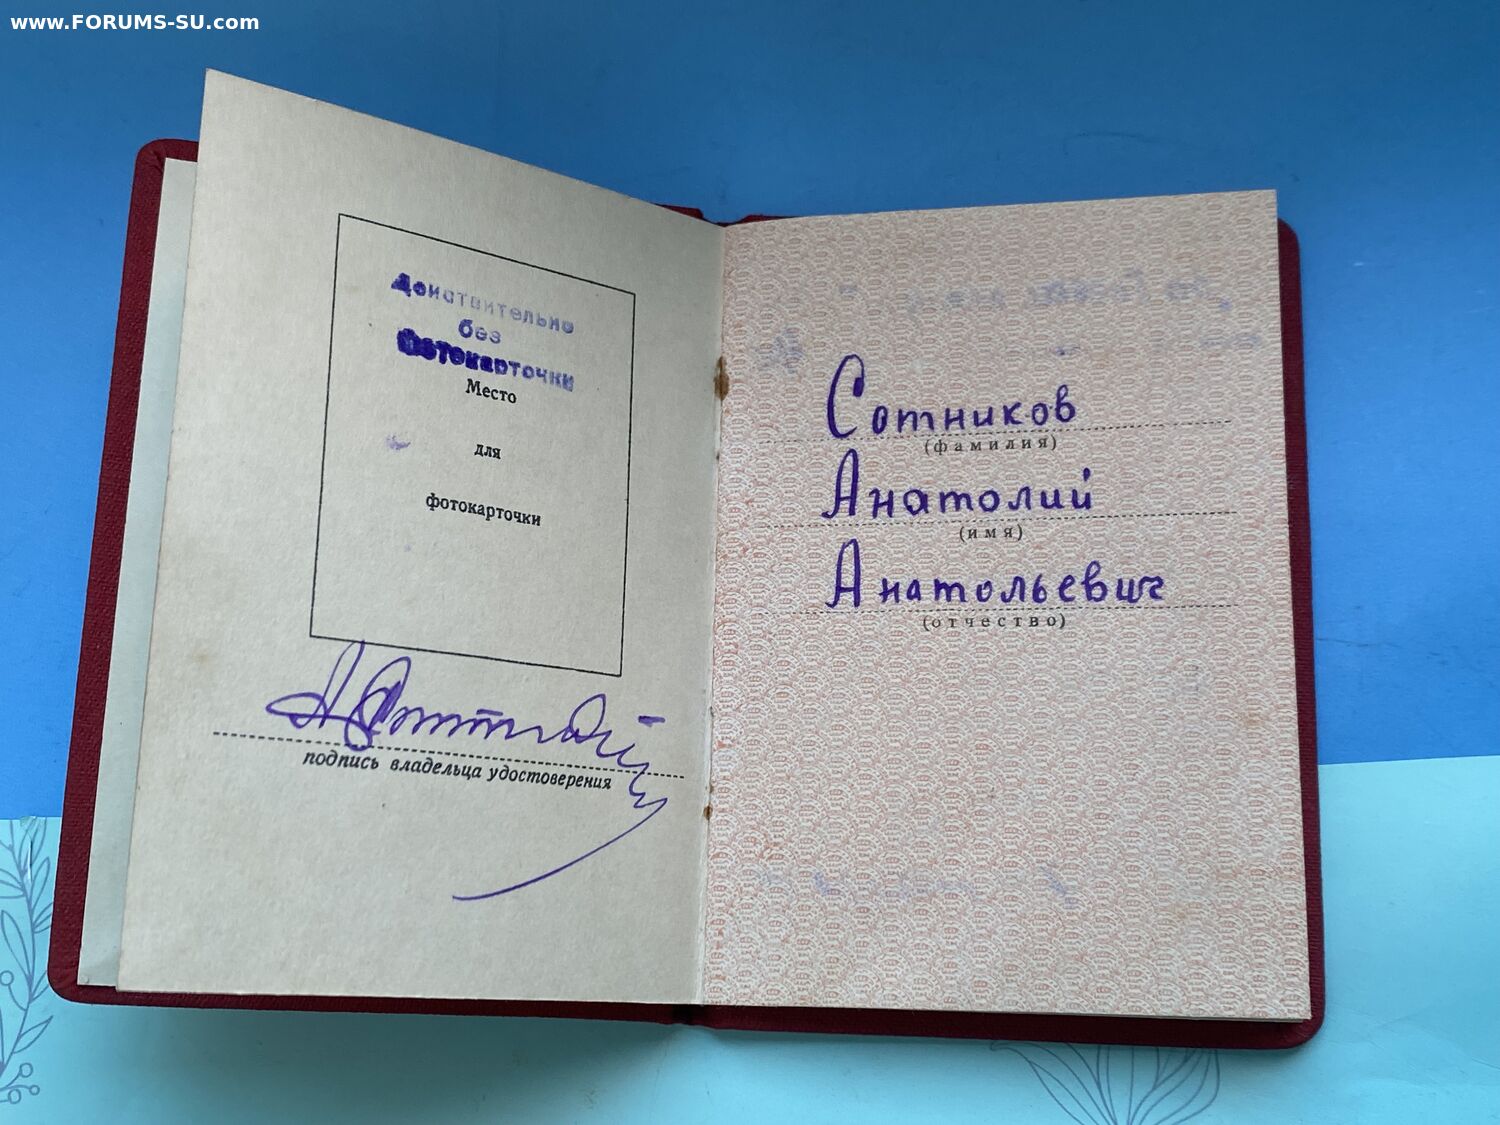 www.FORUMS-SU.com
Действительно
без
фотокарточки
Место
для
фотокарточки
подпись владельца удостоверения
Сотников
(фамилия)
Анатолий
(имя)
Анатольевич
(отчество)